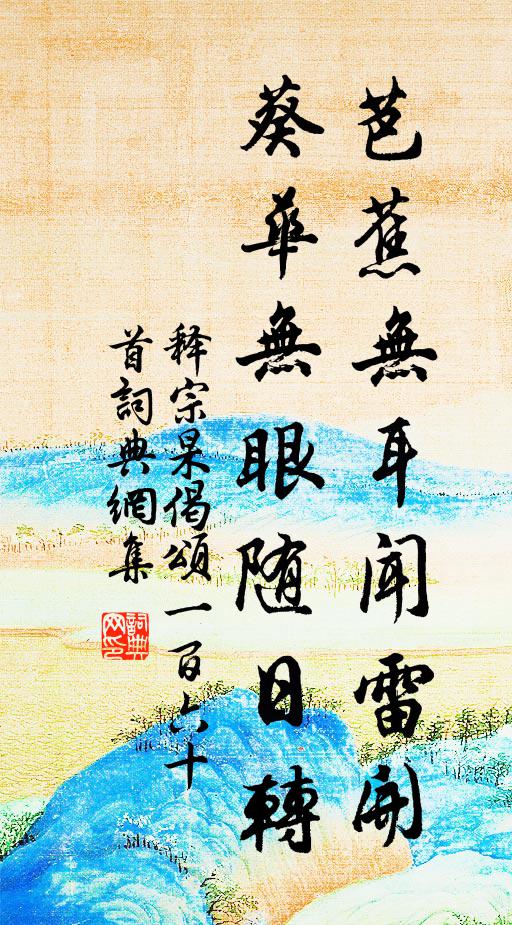 芭蕉無耳聞雷開
葵華無眼随日轉
释宗杲偈頌一百六十
首詞典網集
詞典
网印